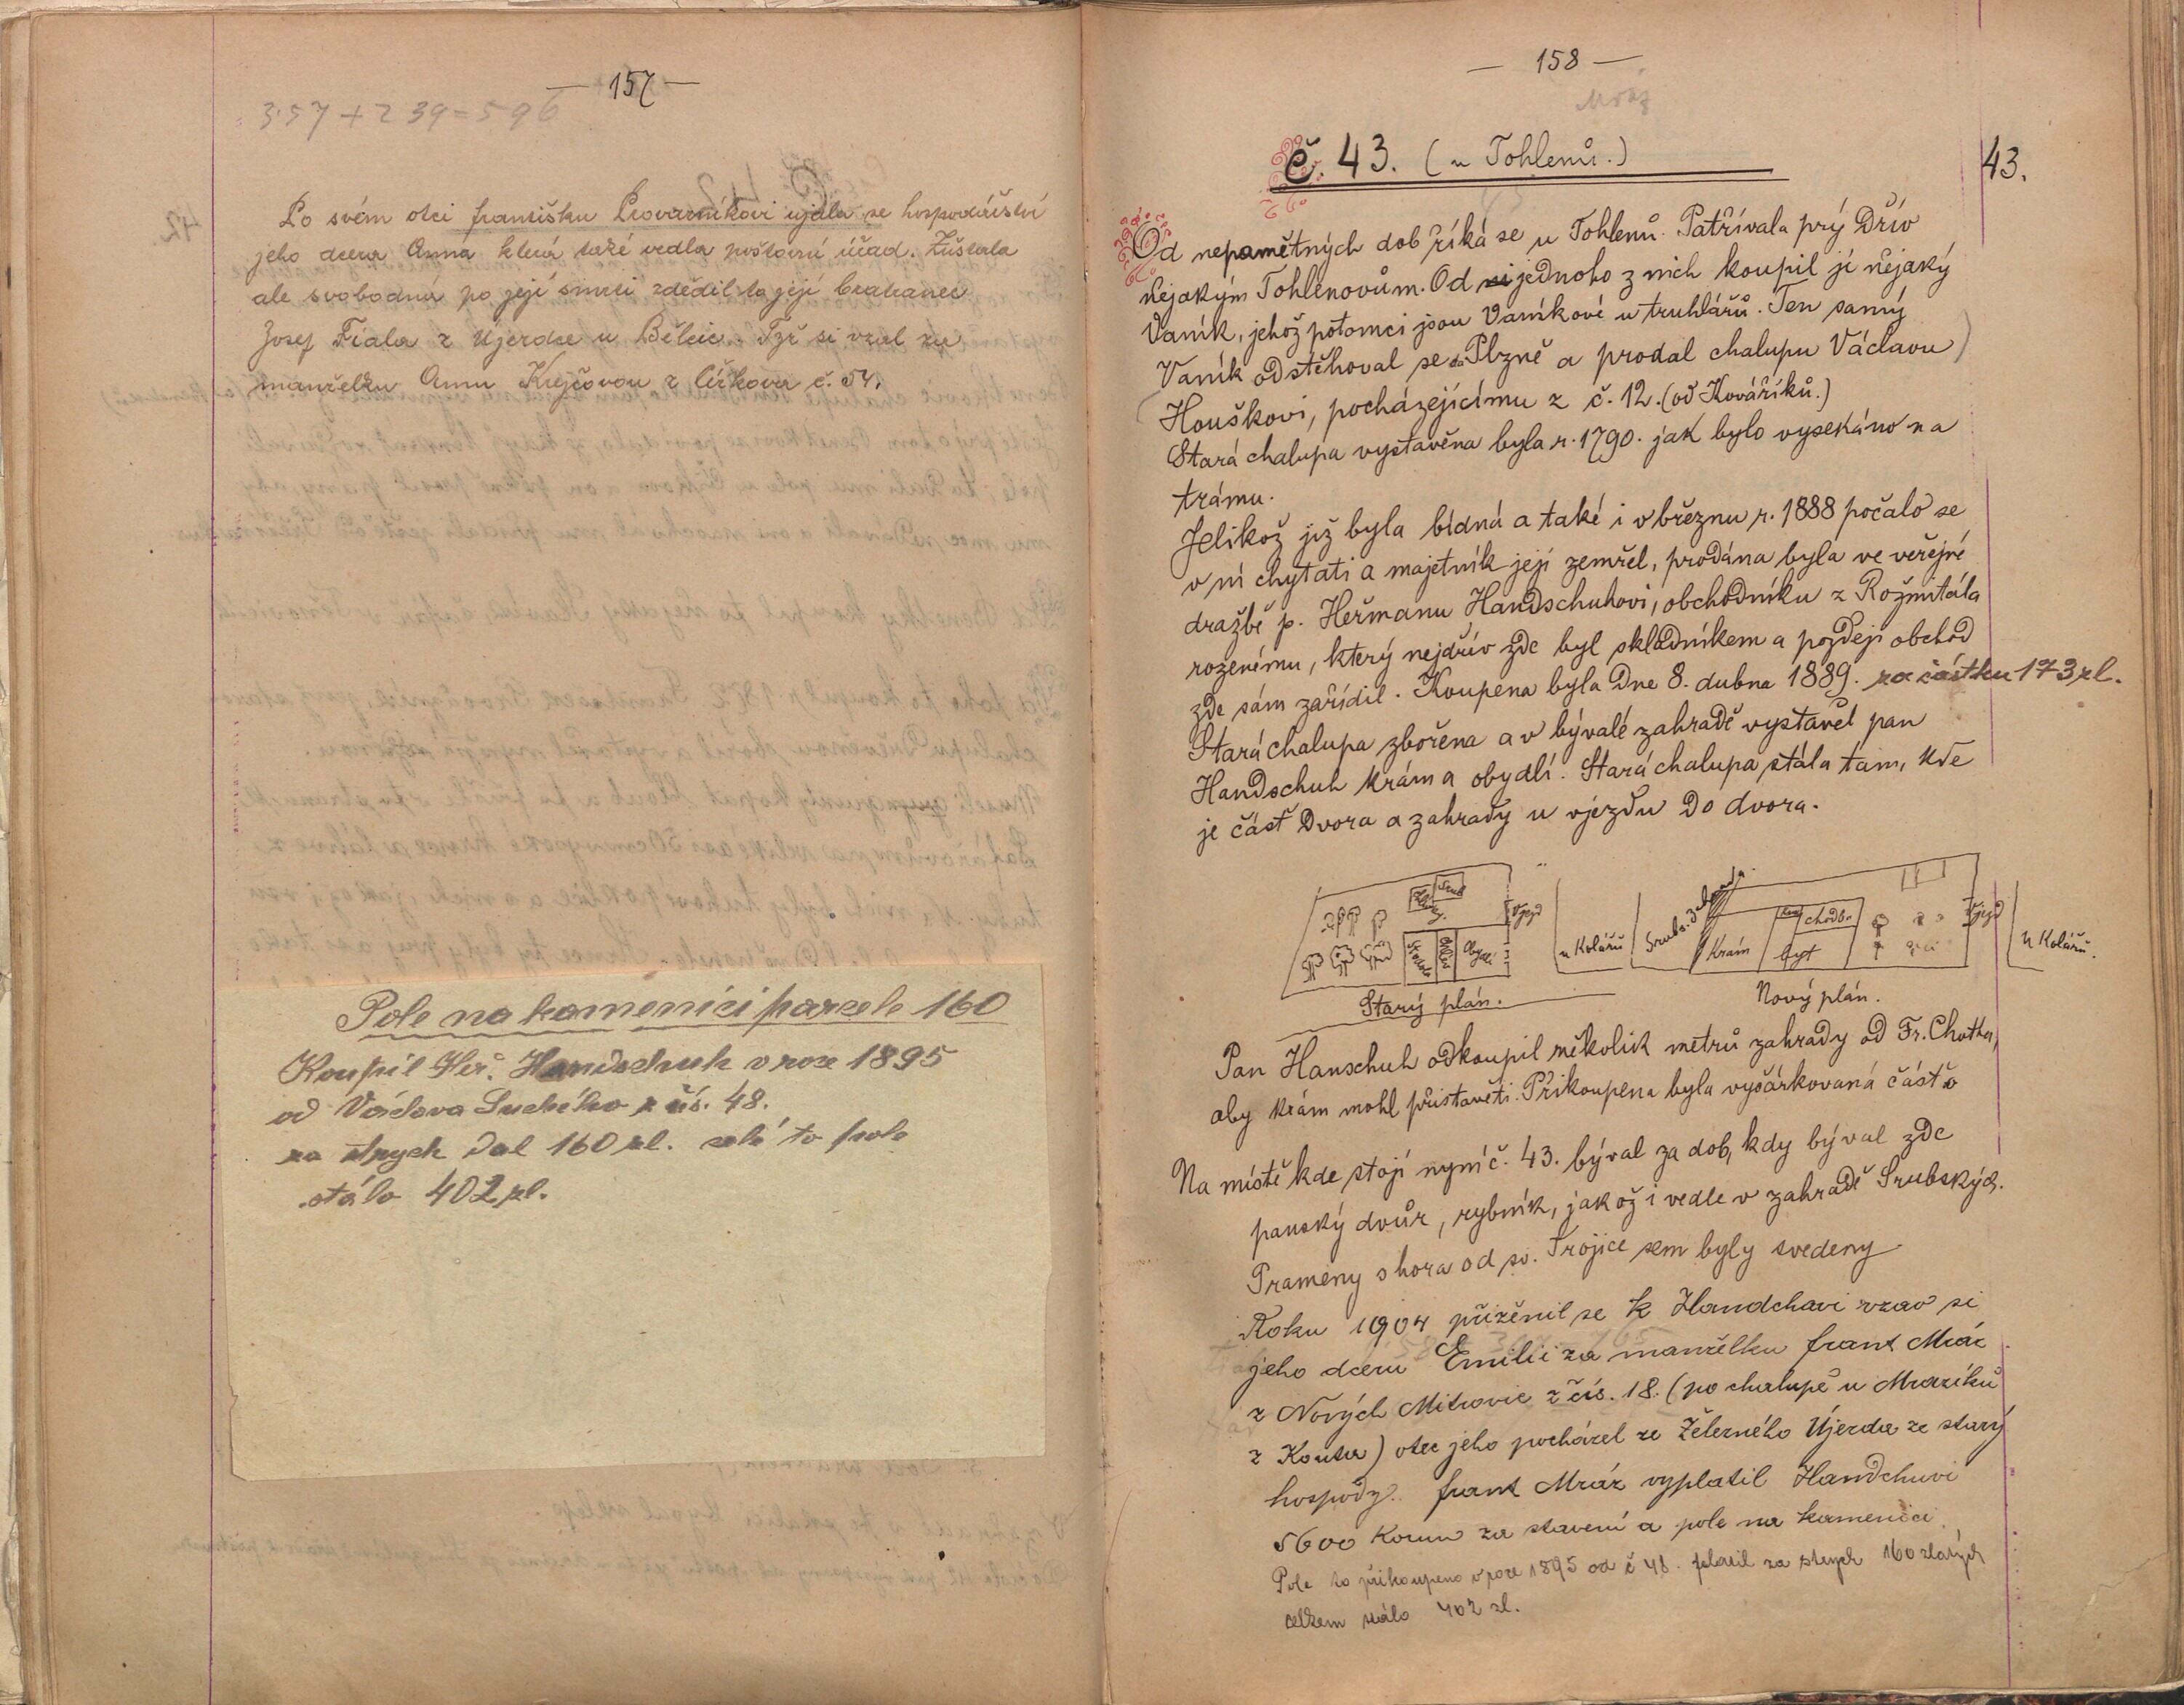 — 157 —
357 + 239 = 596
Po svém otci františku Provazníkovi ujala se hospodářství
jeho dcera Anna která také vedla poštovní úřad. Zůstala
ale svobodná po její smrti zdědil to její bratranec
Josef Fiala z Újezdce u Bělčic. Týž si vzal za
manželku Annu Krejčovou z Čížkova č. 54.
Pole na kamenici parcele 160
Koupil Heř. Handschuh v roce 1895
od Václava Suchého z čís. 48.
za strych dal 160 zl. celé to pole
stálo 402 zl.
— 158 —
Mráz
č. 43. (u Tohlenů.)
43.
Od nepamětných dob říká se u Tohlenů. Patřívala prý Dřív
nějakým Tohlenovům. Od jednoho z nich koupil jí nějaký
Vaník, jehož potomci jsou Vaníkové u truhlářů. Ten samý
Vaník odstěhoval se do Plzně a prodal chalupu Václavu
Houškovi, pocházejícímu z č. 12. (od Kováříků.)
Stará chalupa vystavěna byla r. 1790. jak bylo vysekáno na
trámu.
Jelikož již byla bídná a také i v březnu r. 1888 počalo se
v ní chytati a majetník její zemřel, prodána byla ve veřejné
dražbě p. Heřmanu Handschuhovi, obchodníku z Rožmitála
rozenému, který nejdřív zde byl skladníkem a později obchod
zde sám zařídil. Koupena byla Dne 8. dubna 1889. za částku 173 zl.
Stará chalupa zbořena a v bývalé zahradě vystavěl pan
Handschuh krám a obydlí. Stará chalupa stála tam, kde
je část Dvora a zahrady u vjezdu Do dvora.
Vjezd
Stodola
Chlév
Obydlí
u Kolářů
Starý plán.
Srubs. zahrada.
Krám
chodba
byt
Vjezd
u Kolářů.
Nový plán.
Pan Hanschuh odkoupil několik metrů zahrady od Fr. Chotha,
aby krám mohl přistavěti. Přikoupena byla vyšárkovaná část
Na místě kde stojí nyní č. 43. býval za dob, kdy býval zde
panský dvůr, rybník, jakož i vedle v zahradě Srubských.
Prameny shora od sv. Trojice sem byly svedeny.
Roku 1904 přiženil se k Handchavi vzav si
jeho dceru Emilii za manželku frant Mráz
z Nových Mitrovic z čís. 18. (po chalupě u Mrazíků
z Kouta) otec jeho pocházel ze Železného Újezda ze starý
hospody. frant Mráz vyplatil Handchuvi
5600 Korun za stavení a pole na kamenici
Pole to přikoupeno v roce 1895 od č 48. platil za strych 160 zlatých
celkem stálo 402 zl.